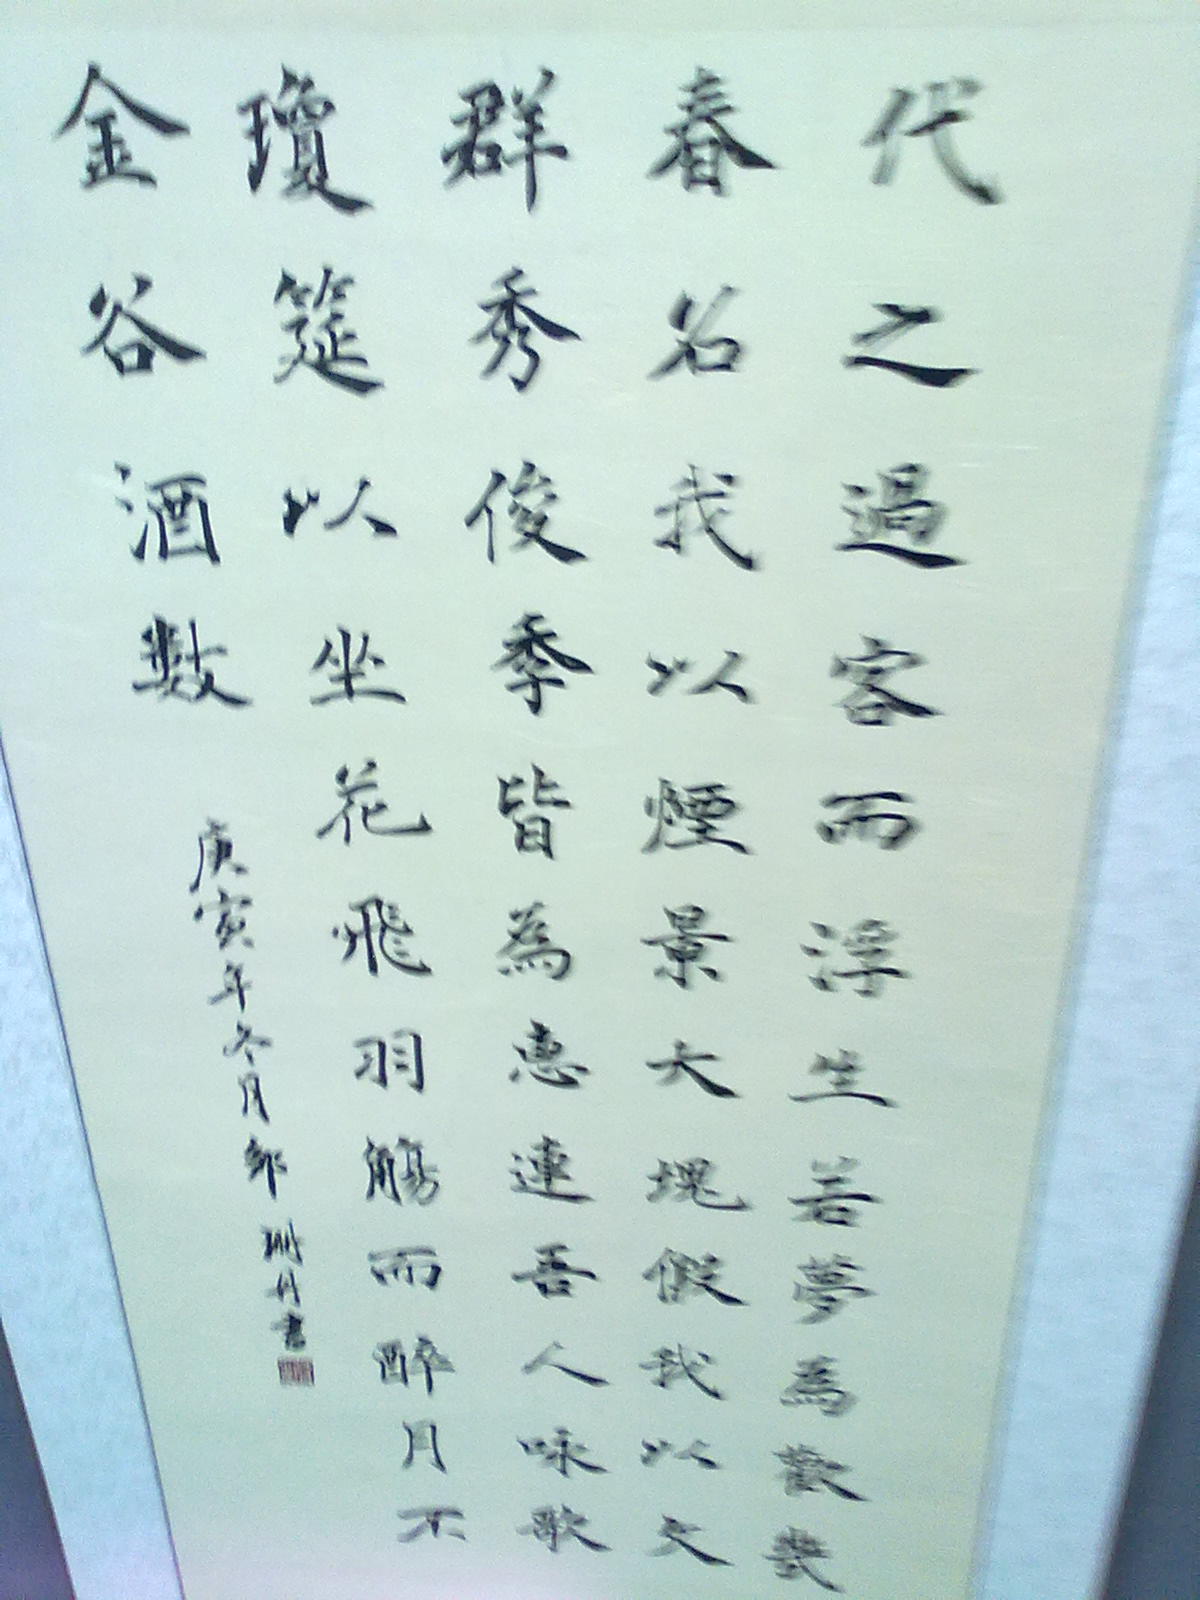 代之過客而浮生若夢為歡
春名我以煙景大塊假我以文
群秀俊季皆為惠連吾人咏歌
瓊筵以坐花飛羽觴而醉月不
金谷酒數
庚寅年冬月 丹書